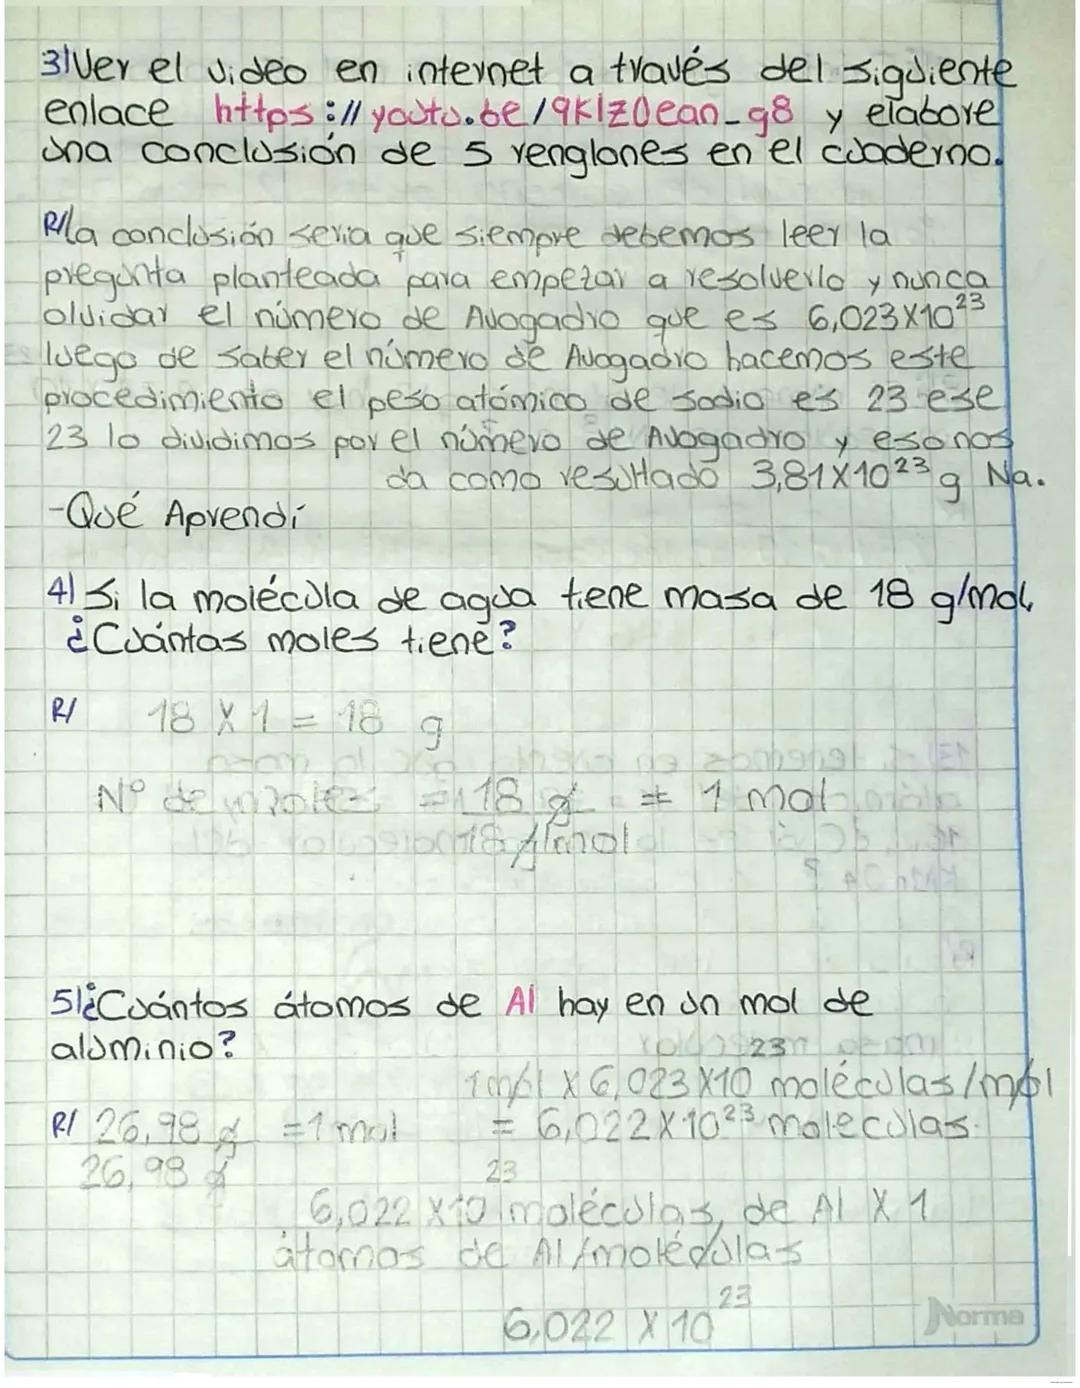 3) Ver el video en internet a través del siguiente
enlace https://youtu.be/9KlZ0ean_g8 y elabore
una conclusión de 5 renglones en el cuaderno.
R/la conclusión seria que siempre debemos leer la
pregunta planteada para empezar a resolverlo y nunca
olvidar el número de Avogadro que es 6,023X10²³
luego de saber el número de Avogadro hacemos este
procedimiento el peso atómico de sodio es 23 ese
23 lo dividimos por el número de Avogadro y eso nos
da como resultado 3,81X10²³ g Na.
-Qué Aprendí
4) Si la molécula de agua tiene masa de 18 g/mol,
¿Cuántas moles tiene?
R/ 18 X 1 = 18 g
N° de moles = 18 g = 1 mol
18 g/mol
5) ¿Cuántos átomos de Al hay en un mol de
aluminio?
1 mol X 6,023X10²³ moléculas/mol
R/ 26,98 g = 1 mol = 6,022X10²³ moleculas.
26,98 g
6,022 X10²³ moléculas de Al X 1
átomos de Al/moléculas
6,022 X 10²³
Norma